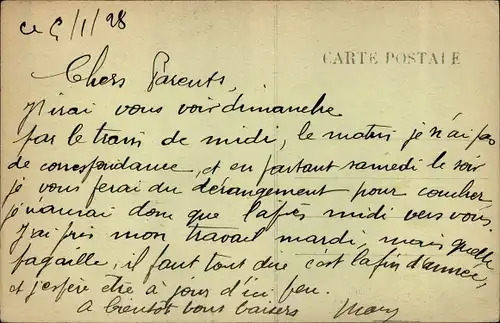 ce 5/1/28
CARTE POSTALE
Chers Parents,
J'irai vous voir dimanche
par le train de midi, le matin je n'ai pas
de correspondance, et en partant samedi le soir
je vous ferai du dérangement pour coucher,
je n'aurai donc que l'après midi vers vous.
J'ai pris mon travail mardi, mais quelle
pagaille, il faut tout dire c'est la fin d'année,
et j'espère être à jour d'ici peu.
A bientôt bons baisers